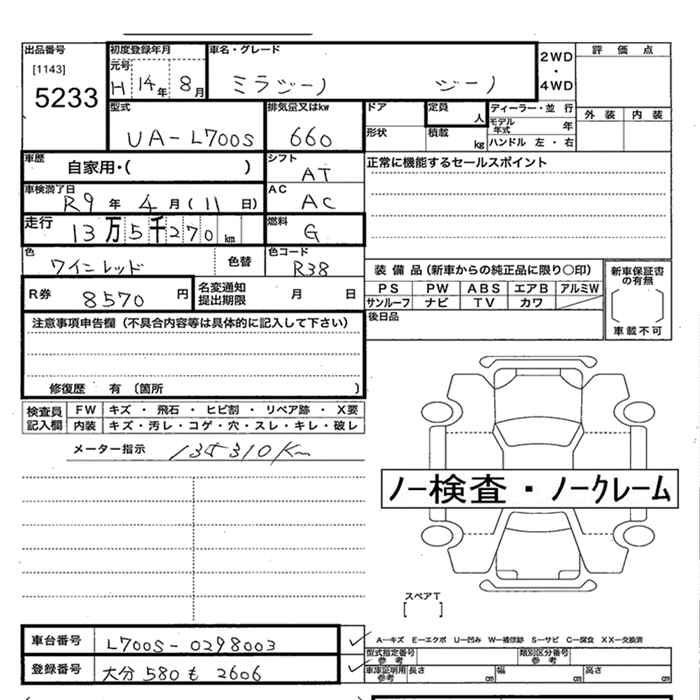 出品番号
[1143]
5233
初度登録年月
元号
H 14年 8月
車名・グレード
ミラジーノ ジーノ
2WD
・
4WD
評価点
外装 内装
型式
UA-L700S
排気量又はkw
660
ドア
形状
定員
人
積載
kg
ディーラー・並行
モデル年式 年
ハンドル 左・右
車歴
自家用・( )
シフト
AT
正常に機能するセールスポイント
車検満了日
R9年 4月(11日)
AC
AC
走行
13万5千270km
燃料
G
色
ワインレッド
色替
色コード
R38
装備品(新車からの純正品に限り○印)
PS PW ABS エアB アルミW
サンルーフ ナビ TV カワ
新車保証書の有無
車載不可
R券
8570円
名変通知
提出期限
月 日
後日品
注意事項申告欄(不具合内容等は具体的に記入して下さい)
修復歴 有〔箇所 〕
検査員
記入欄
FW キズ・飛石・ヒビ割・リペア跡・X要
内装 キズ・汚レ・コゲ・穴・スレ・キレ・破レ
メーター指示 135310Km
ノー検査・ノークレーム
スペアT
[ ]
車台番号 L700S-0298003
登録番号 大分 580 も 2606
A―キズ E―エクボ U―凹み W―補修跡 S―サビ C―腐食 XX―交換済
型式指定番号
参考
類別区分番号
参考
車庫証明用
参考
長さ cm 幅 cm 高さ cm